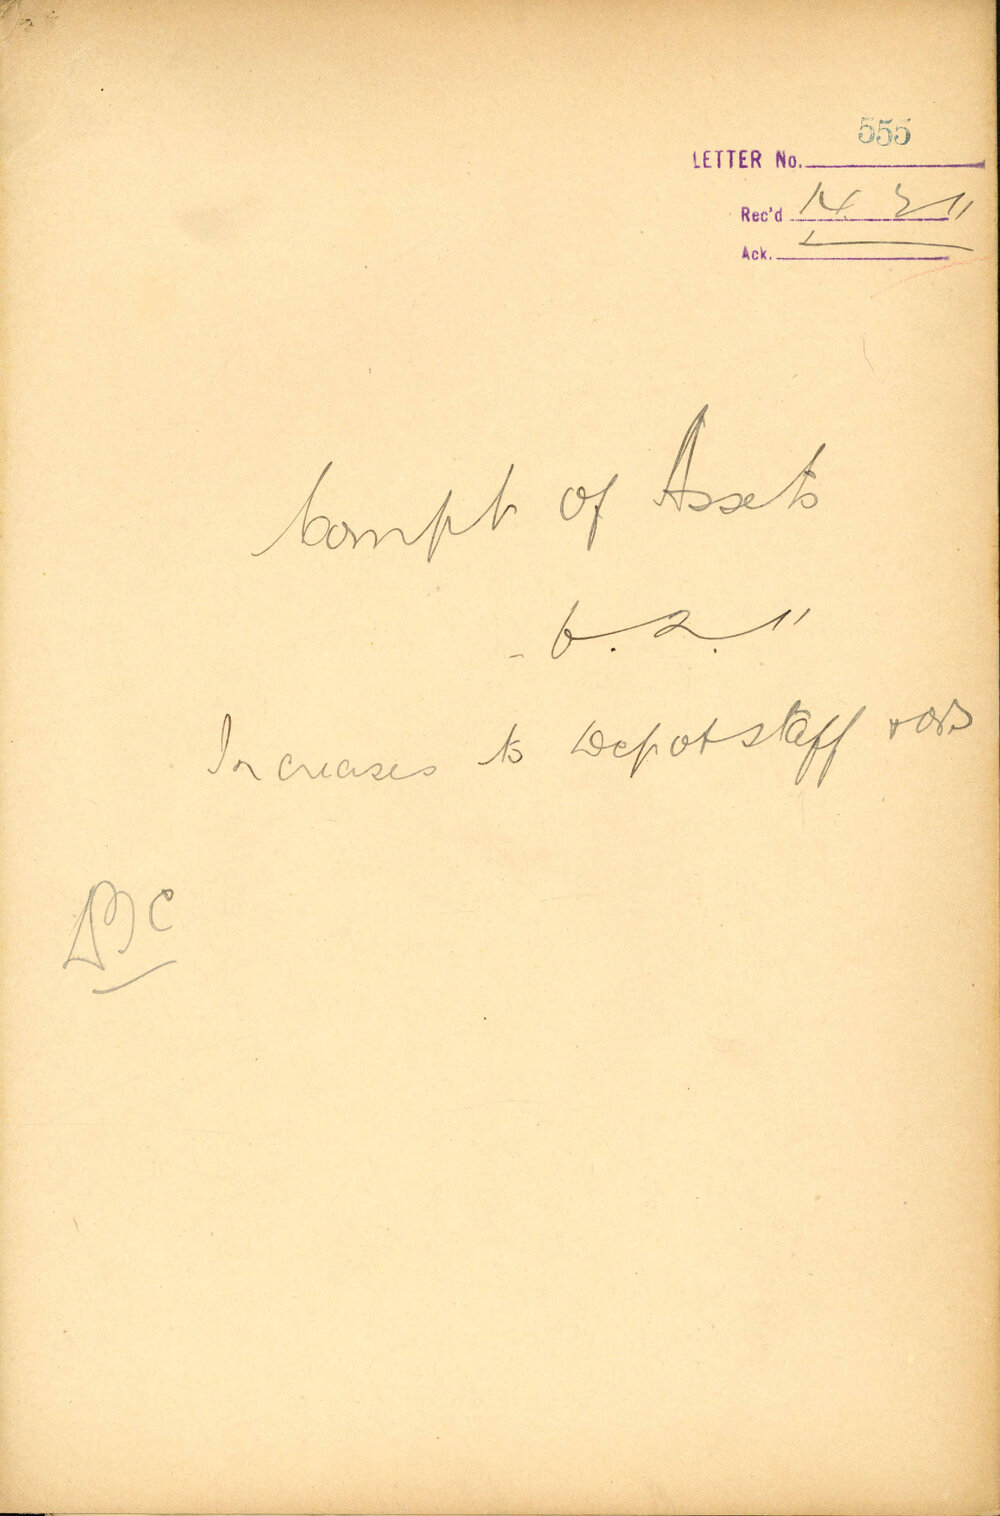 555
LETTER No.
Rec'd 14 2 11
Ack.
Compt of Assets
6. 2. 11
Increases to Depot staff